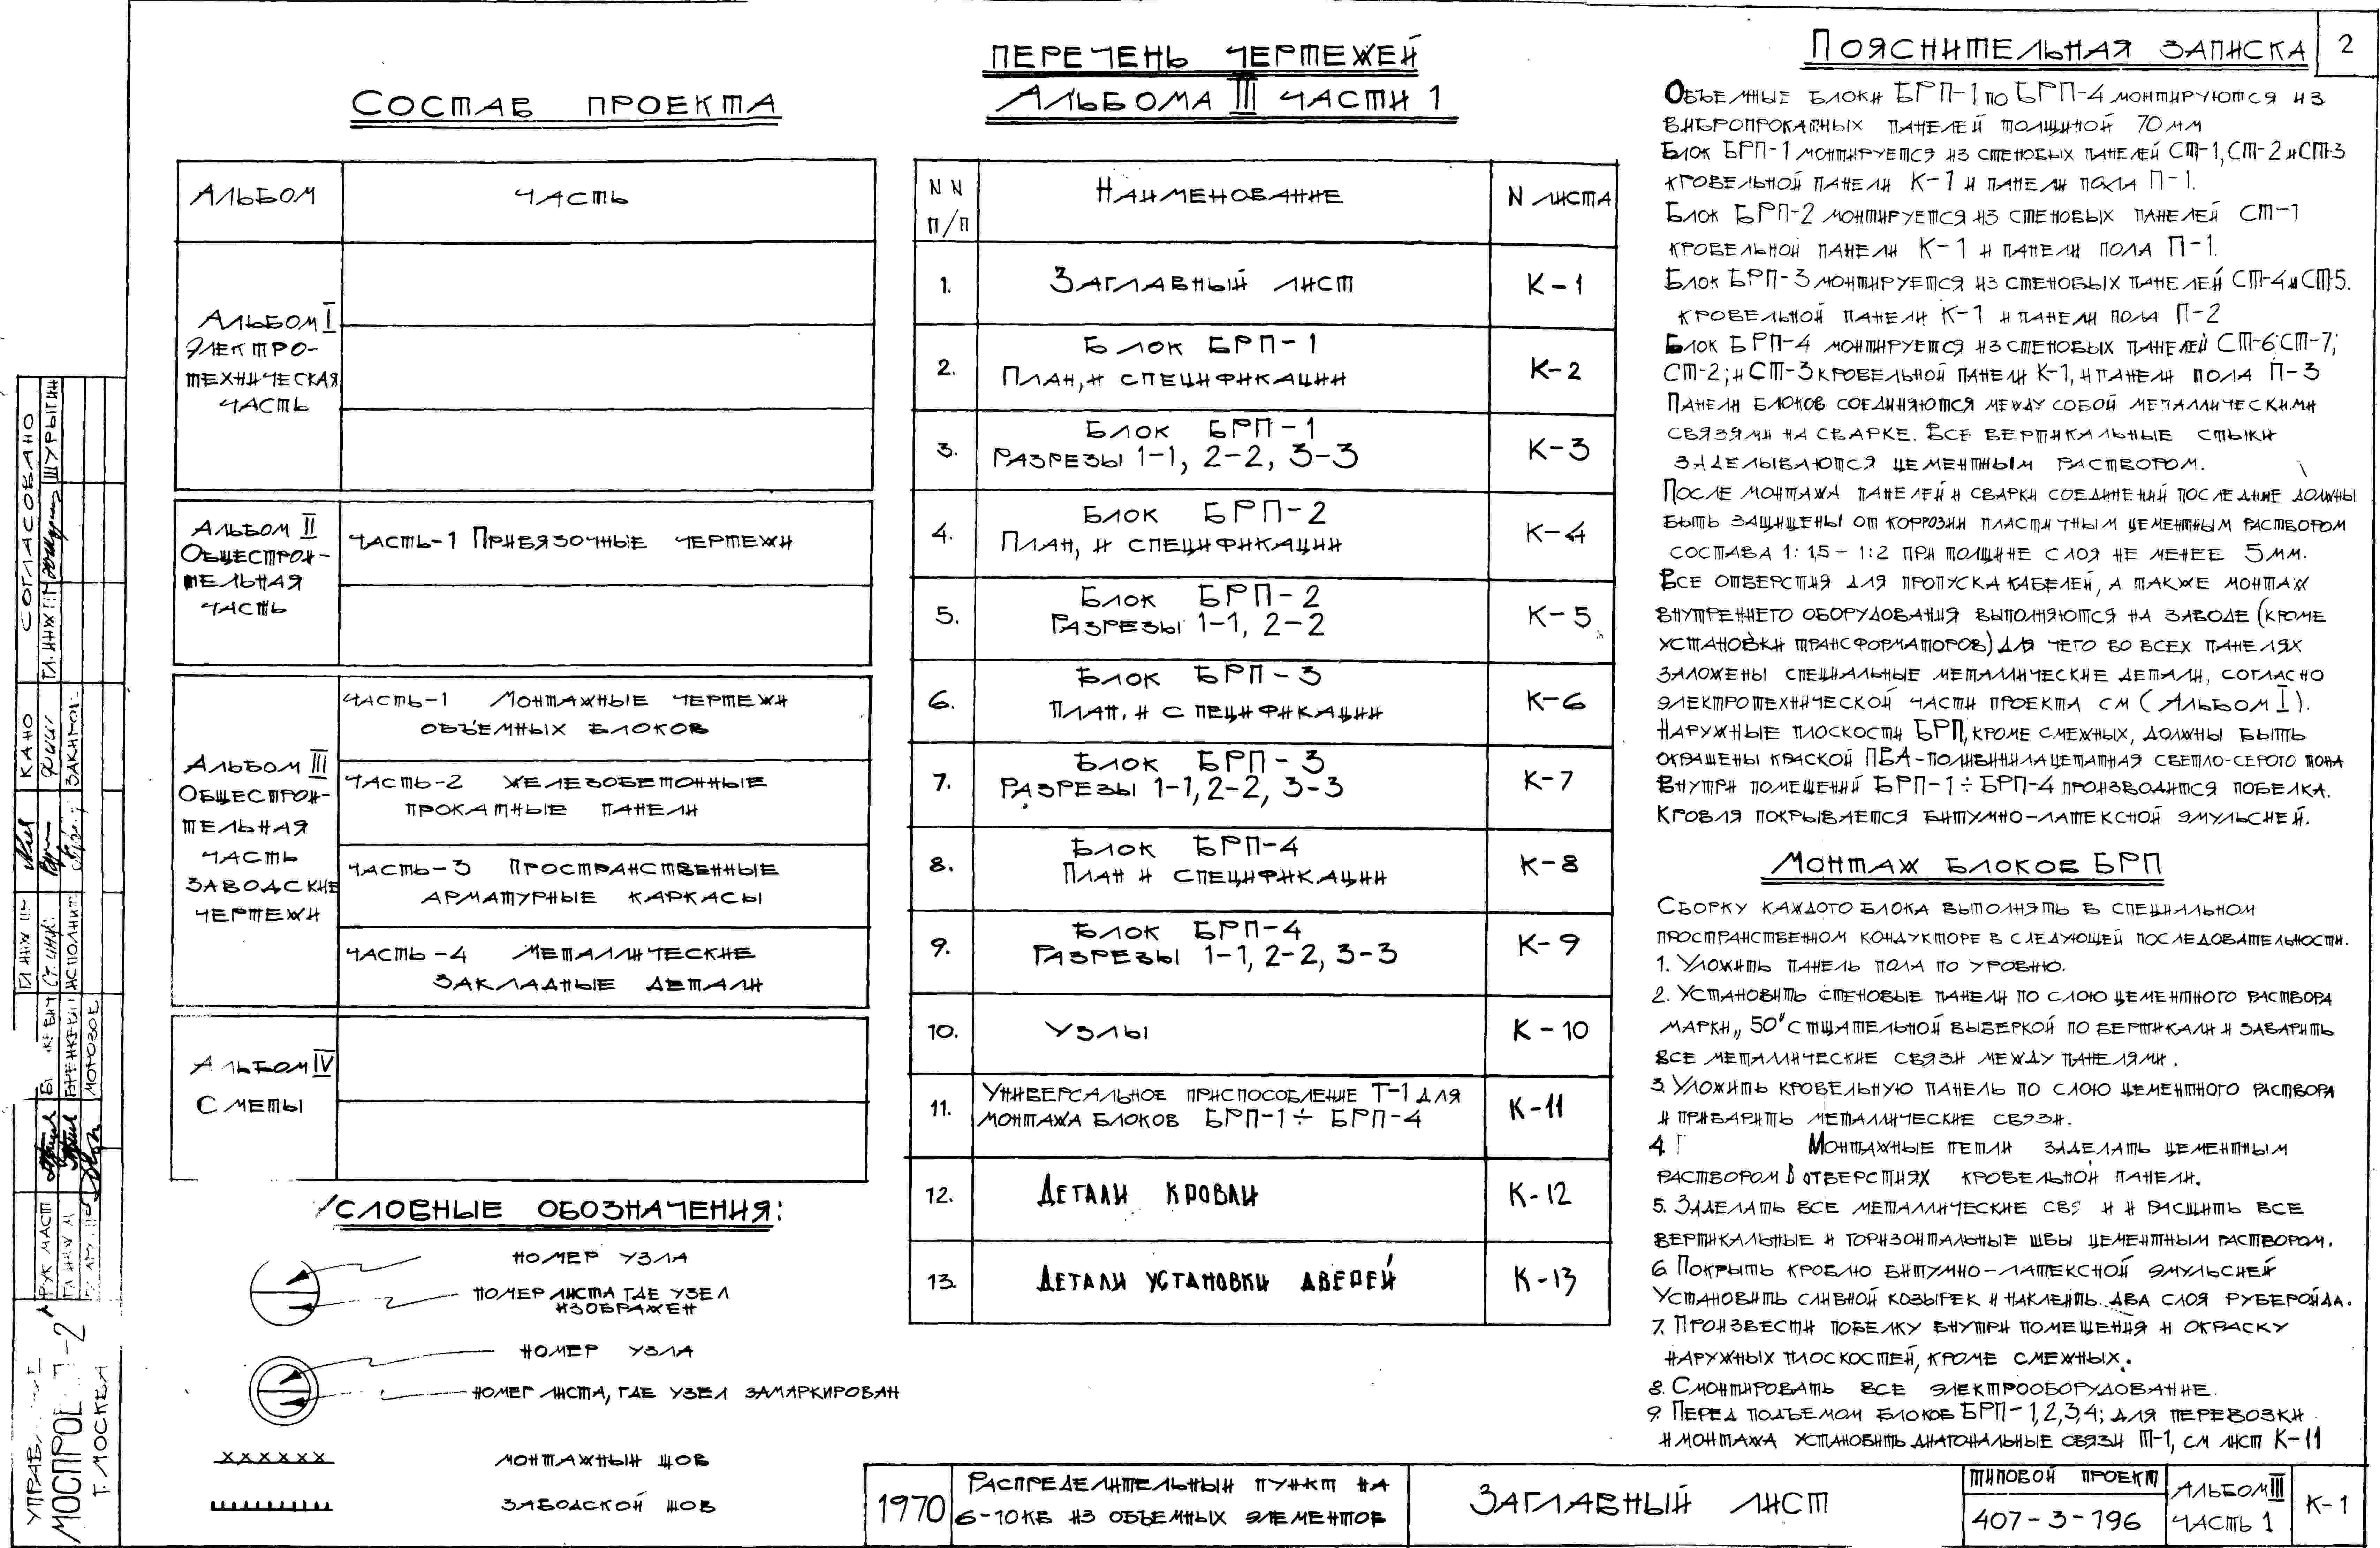 2
СОСТАВ ПРОЕКТА
АЛЬБОМ
ЧАСТЬ
АЛЬБОМ I
ЭЛЕКТРО-
ТЕХНИЧЕСКАЯ
ЧАСТЬ
АЛЬБОМ II
ОБЩЕСТРОИ-
ТЕЛЬНАЯ
ЧАСТЬ
ЧАСТЬ-1 ПРИВЯЗОЧНЫЕ ЧЕРТЕЖИ
АЛЬБОМ III
ОБЩЕСТРОИ-
ТЕЛЬНАЯ
ЧАСТЬ
ЗАВОДСКИЕ
ЧЕРТЕЖИ
ЧАСТЬ-1 МОНТАЖНЫЕ ЧЕРТЕЖИ
ОБЪЕМНЫХ БЛОКОВ
ЧАСТЬ-2 ЖЕЛЕЗОБЕТОННЫЕ
ПРОКАТНЫЕ ПАНЕЛИ
ЧАСТЬ-3 ПРОСТРАНСТВЕННЫЕ
АРМАТУРНЫЕ КАРКАСЫ
ЧАСТЬ-4 МЕТАЛЛИЧЕСКИЕ
ЗАКЛАДНЫЕ ДЕТАЛИ
АЛЬБОМ IV
СМЕТЫ
УСЛОВНЫЕ ОБОЗНАЧЕНИЯ:
НОМЕР УЗЛА
НОМЕР ЛИСТА ГДЕ УЗЕЛ
ИЗОБРАЖЕН
НОМЕР УЗЛА
НОМЕР ЛИСТА, ГДЕ УЗЕЛ ЗАМАРКИРОВАН
МОНТАЖНЫЙ ШОВ
ЗАВОДСКОЙ ШОВ
ПЕРЕЧЕНЬ ЧЕРТЕЖЕЙ
АЛЬБОМА III ЧАСТИ 1
NN П/П
НАИМЕНОВАНИЕ
N ЛИСТА
1. ЗАГЛАВНЫЙ ЛИСТ К-1
2. БЛОК БРП-1
ПЛАН, И СПЕЦИФИКАЦИИ К-2
3. БЛОК БРП-1
РАЗРЕЗЫ 1-1, 2-2, 3-3 К-3
4. БЛОК БРП-2
ПЛАН, И СПЕЦИФИКАЦИИ К-4
5. БЛОК БРП-2
РАЗРЕЗЫ 1-1, 2-2 К-5
6. БЛОК БРП-3
ПЛАН, И СПЕЦИФИКАЦИИ К-6
7. БЛОК БРП-3
РАЗРЕЗЫ 1-1, 2-2, 3-3 К-7
8. БЛОК БРП-4
ПЛАН И СПЕЦИФИКАЦИИ К-8
9. БЛОК БРП-4
РАЗРЕЗЫ 1-1, 2-2, 3-3 К-9
10. УЗЛЫ К-10
11. УНИВЕРСАЛЬНОЕ ПРИСПОСОБЛЕНИЕ Т-1 ДЛЯ
МОНТАЖА БЛОКОВ БРП-1÷БРП-4 К-11
12. ДЕТАЛИ КРОВЛИ К-12
13. ДЕТАЛИ УСТАНОВКИ ДВЕРЕЙ К-13
ПОЯСНИТЕЛЬНАЯ ЗАПИСКА
ОБЪЕМНЫЕ БЛОКИ БРП-1 ПО БРП-4 МОНТИРУЮТСЯ ИЗ
ВИБРОПРОКАТНЫХ ПАНЕЛЕЙ ТОЛЩИНОЙ 70 ММ
БЛОК БРП-1 МОНТИРУЕТСЯ ИЗ СТЕНОВЫХ ПАНЕЛЕЙ СТ-1, СТ-2 И СТ-3
КРОВЕЛЬНОЙ ПАНЕЛИ К-1 И ПАНЕЛИ ПОЛА П-1.
БЛОК БРП-2 МОНТИРУЕТСЯ ИЗ СТЕНОВЫХ ПАНЕЛЕЙ СТ-1
КРОВЕЛЬНОЙ ПАНЕЛИ К-1 И ПАНЕЛИ ПОЛА П-1.
БЛОК БРП-3 МОНТИРУЕТСЯ ИЗ СТЕНОВЫХ ПАНЕЛЕЙ СТ-4 И СТ-5.
КРОВЕЛЬНОЙ ПАНЕЛИ К-1 И ПАНЕЛИ ПОЛА П-2
БЛОК БРП-4 МОНТИРУЕТСЯ ИЗ СТЕНОВЫХ ПАНЕЛЕЙ СТ-6; СТ-7;
СТ-2; И СТ-3 КРОВЕЛЬНОЙ ПАНЕЛИ К-1, И ПАНЕЛИ ПОЛА П-3
ПАНЕЛИ БЛОКОВ СОЕДИНЯЮТСЯ МЕЖДУ СОБОЙ МЕТАЛЛИЧЕСКИМИ
СВЯЗЯМИ НА СВАРКЕ. ВСЕ ВЕРТИКАЛЬНЫЕ СТЫКИ
ЗАДЕЛЫВАЮТСЯ ЦЕМЕНТНЫМ РАСТВОРОМ.
ПОСЛЕ МОНТАЖА ПАНЕЛЕЙ И СВАРКИ СОЕДИНЕНИЙ ПОСЛЕДНИЕ ДОЛЖНЫ
БЫТЬ ЗАЩИЩЕНЫ ОТ КОРРОЗИИ ПЛАСТИЧНЫМ ЦЕМЕНТНЫМ РАСТВОРОМ
СОСТАВА 1:1,5 - 1:2 ПРИ ТОЛЩИНЕ СЛОЯ НЕ МЕНЕЕ 5ММ.
ВСЕ ОТВЕРСТИЯ ДЛЯ ПРОПУСКА КАБЕЛЕЙ, А ТАКЖЕ МОНТАЖ
ВНУТРЕННЕГО ОБОРУДОВАНИЯ ВЫПОЛНЯЮТСЯ НА ЗАВОДЕ (КРОМЕ
УСТАНОВКИ ТРАНСФОРМАТОРОВ) ДЛЯ ЧЕГО ВО ВСЕХ ПАНЕЛЯХ
ЗАЛОЖЕНЫ СПЕЦИАЛЬНЫЕ МЕТАЛЛИЧЕСКИЕ ДЕТАЛИ, СОГЛАСНО
ЭЛЕКТРОТЕХНИЧЕСКОЙ ЧАСТИ ПРОЕКТА СМ (АЛЬБОМ I).
НАРУЖНЫЕ ПЛОСКОСТИ БРП, КРОМЕ СМЕЖНЫХ, ДОЛЖНЫ БЫТЬ
ОКРАШЕНЫ КРАСКОЙ ПВА-ПОЛИВИНИЛАЦЕТАТНАЯ СВЕТЛО-СЕРОГО ТОНА
ВНУТРИ ПОМЕЩЕНИЙ БРП-1÷БРП-4 ПРОИЗВОДИТСЯ ПОБЕЛКА.
КРОВЛЯ ПОКРЫВАЕТСЯ БИТУМНО-ЛАТЕКСНОЙ ЭМУЛЬСИЕЙ.
МОНТАЖ БЛОКОВ БРП
СБОРКУ КАЖДОГО БЛОКА ВЫПОЛНЯТЬ В СПЕЦИАЛЬНОМ
ПРОСТРАНСТВЕННОМ КОНДУКТОРЕ В СЛЕДУЮЩЕЙ ПОСЛЕДОВАТЕЛЬНОСТИ.
1. УЛОЖИТЬ ПАНЕЛЬ ПОЛА ПО УРОВНЮ.
2. УСТАНОВИТЬ СТЕНОВЫЕ ПАНЕЛИ ПО СЛОЮ ЦЕМЕНТНОГО РАСТВОРА
МАРКИ „50" С ТЩАТЕЛЬНОЙ ВЫВЕРКОЙ ПО ВЕРТИКАЛИ И ЗАВАРИТЬ
ВСЕ МЕТАЛЛИЧЕСКИЕ СВЯЗИ МЕЖДУ ПАНЕЛЯМИ.
3. УЛОЖИТЬ КРОВЕЛЬНУЮ ПАНЕЛЬ ПО СЛОЮ ЦЕМЕНТНОГО РАСТВОРА
И ПРИВАРИТЬ МЕТАЛЛИЧЕСКИЕ СВЯЗИ.
4. МОНТАЖНЫЕ ПЕТЛИ ЗАДЕЛАТЬ ЦЕМЕНТНЫМ
РАСТВОРОМ В ОТВЕРСТИЯХ КРОВЕЛЬНОЙ ПАНЕЛИ.
5. ЗАДЕЛАТЬ ВСЕ МЕТАЛЛИЧЕСКИЕ СВЯЗИ И РАСШИТЬ ВСЕ
ВЕРТИКАЛЬНЫЕ И ГОРИЗОНТАЛЬНЫЕ ШВЫ ЦЕМЕНТНЫМ РАСТВОРОМ.
6. ПОКРЫТЬ КРОВЛЮ БИТУМНО-ЛАТЕКСНОЙ ЭМУЛЬСИЕЙ
УСТАНОВИТЬ СЛИВНОЙ КОЗЫРЕК И НАКЛЕИТЬ ДВА СЛОЯ РУБЕРОЙДА.
7. ПРОИЗВЕСТИ ПОБЕЛКУ ВНУТРИ ПОМЕЩЕНИЯ И ОКРАСКУ
НАРУЖНЫХ ПЛОСКОСТЕЙ, КРОМЕ СМЕЖНЫХ.
8. СМОНТИРОВАТЬ ВСЕ ЭЛЕКТРООБОРУДОВАНИЕ.
9. ПЕРЕД ПОДЪЕМОМ БЛОКОВ БРП-1,2,3,4; ДЛЯ ПЕРЕВОЗКИ
И МОНТАЖА УСТАНОВИТЬ ДИАГОНАЛЬНЫЕ СВЯЗИ Т-1, СМ ЛИСТ К-11
1970
РАСПРЕДЕЛИТЕЛЬНЫЙ ПУНКТ НА
6-10КВ ИЗ ОБЪЕМНЫХ ЭЛЕМЕНТОВ
ЗАГЛАВНЫЙ ЛИСТ
ТИПОВОЙ ПРОЕКТ
407-3-196
АЛЬБОМ III
ЧАСТЬ 1
К-1
СОГЛАСОВАНО
ШУРЫГИН
КАНО
ИСПОЛНИТ
РУК МАСТ
Г. МОСКВА